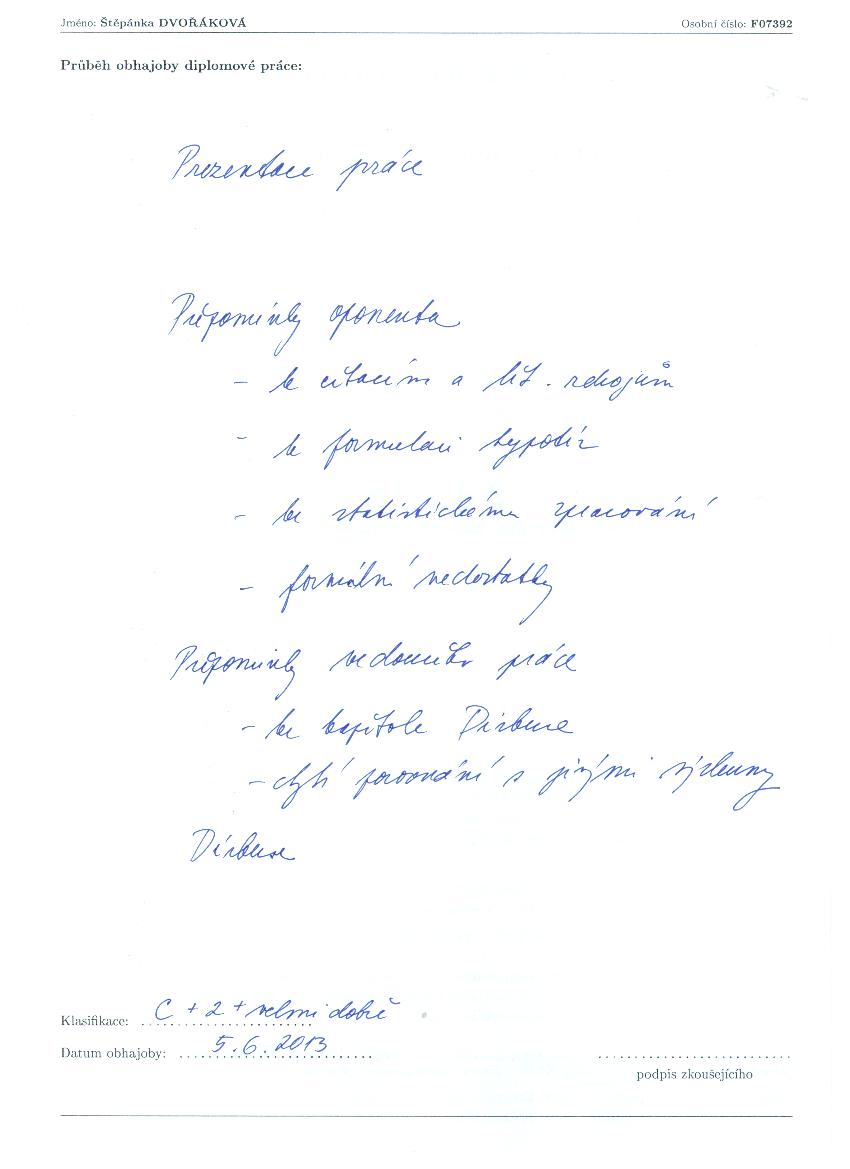 Jméno: Štěpánka DVOŘÁKOVÁ Osobní číslo: F07392
Průběh obhajoby diplomové práce:
Prezentace práce
Připomínky oponenta
- k citacím a lit. zdrojům
- k formulaci hypotéz
- ke statistickému zpracování
- formální nedostatky
Připomínky vedoucího práce
- ke kapitole Diskuse
- chybí porovnání s jinými výzkumy
Diskuse
Klasifikace: C + 2 + velmi dobře
Datum obhajoby: 5.6.2013
podpis zkoušejícího